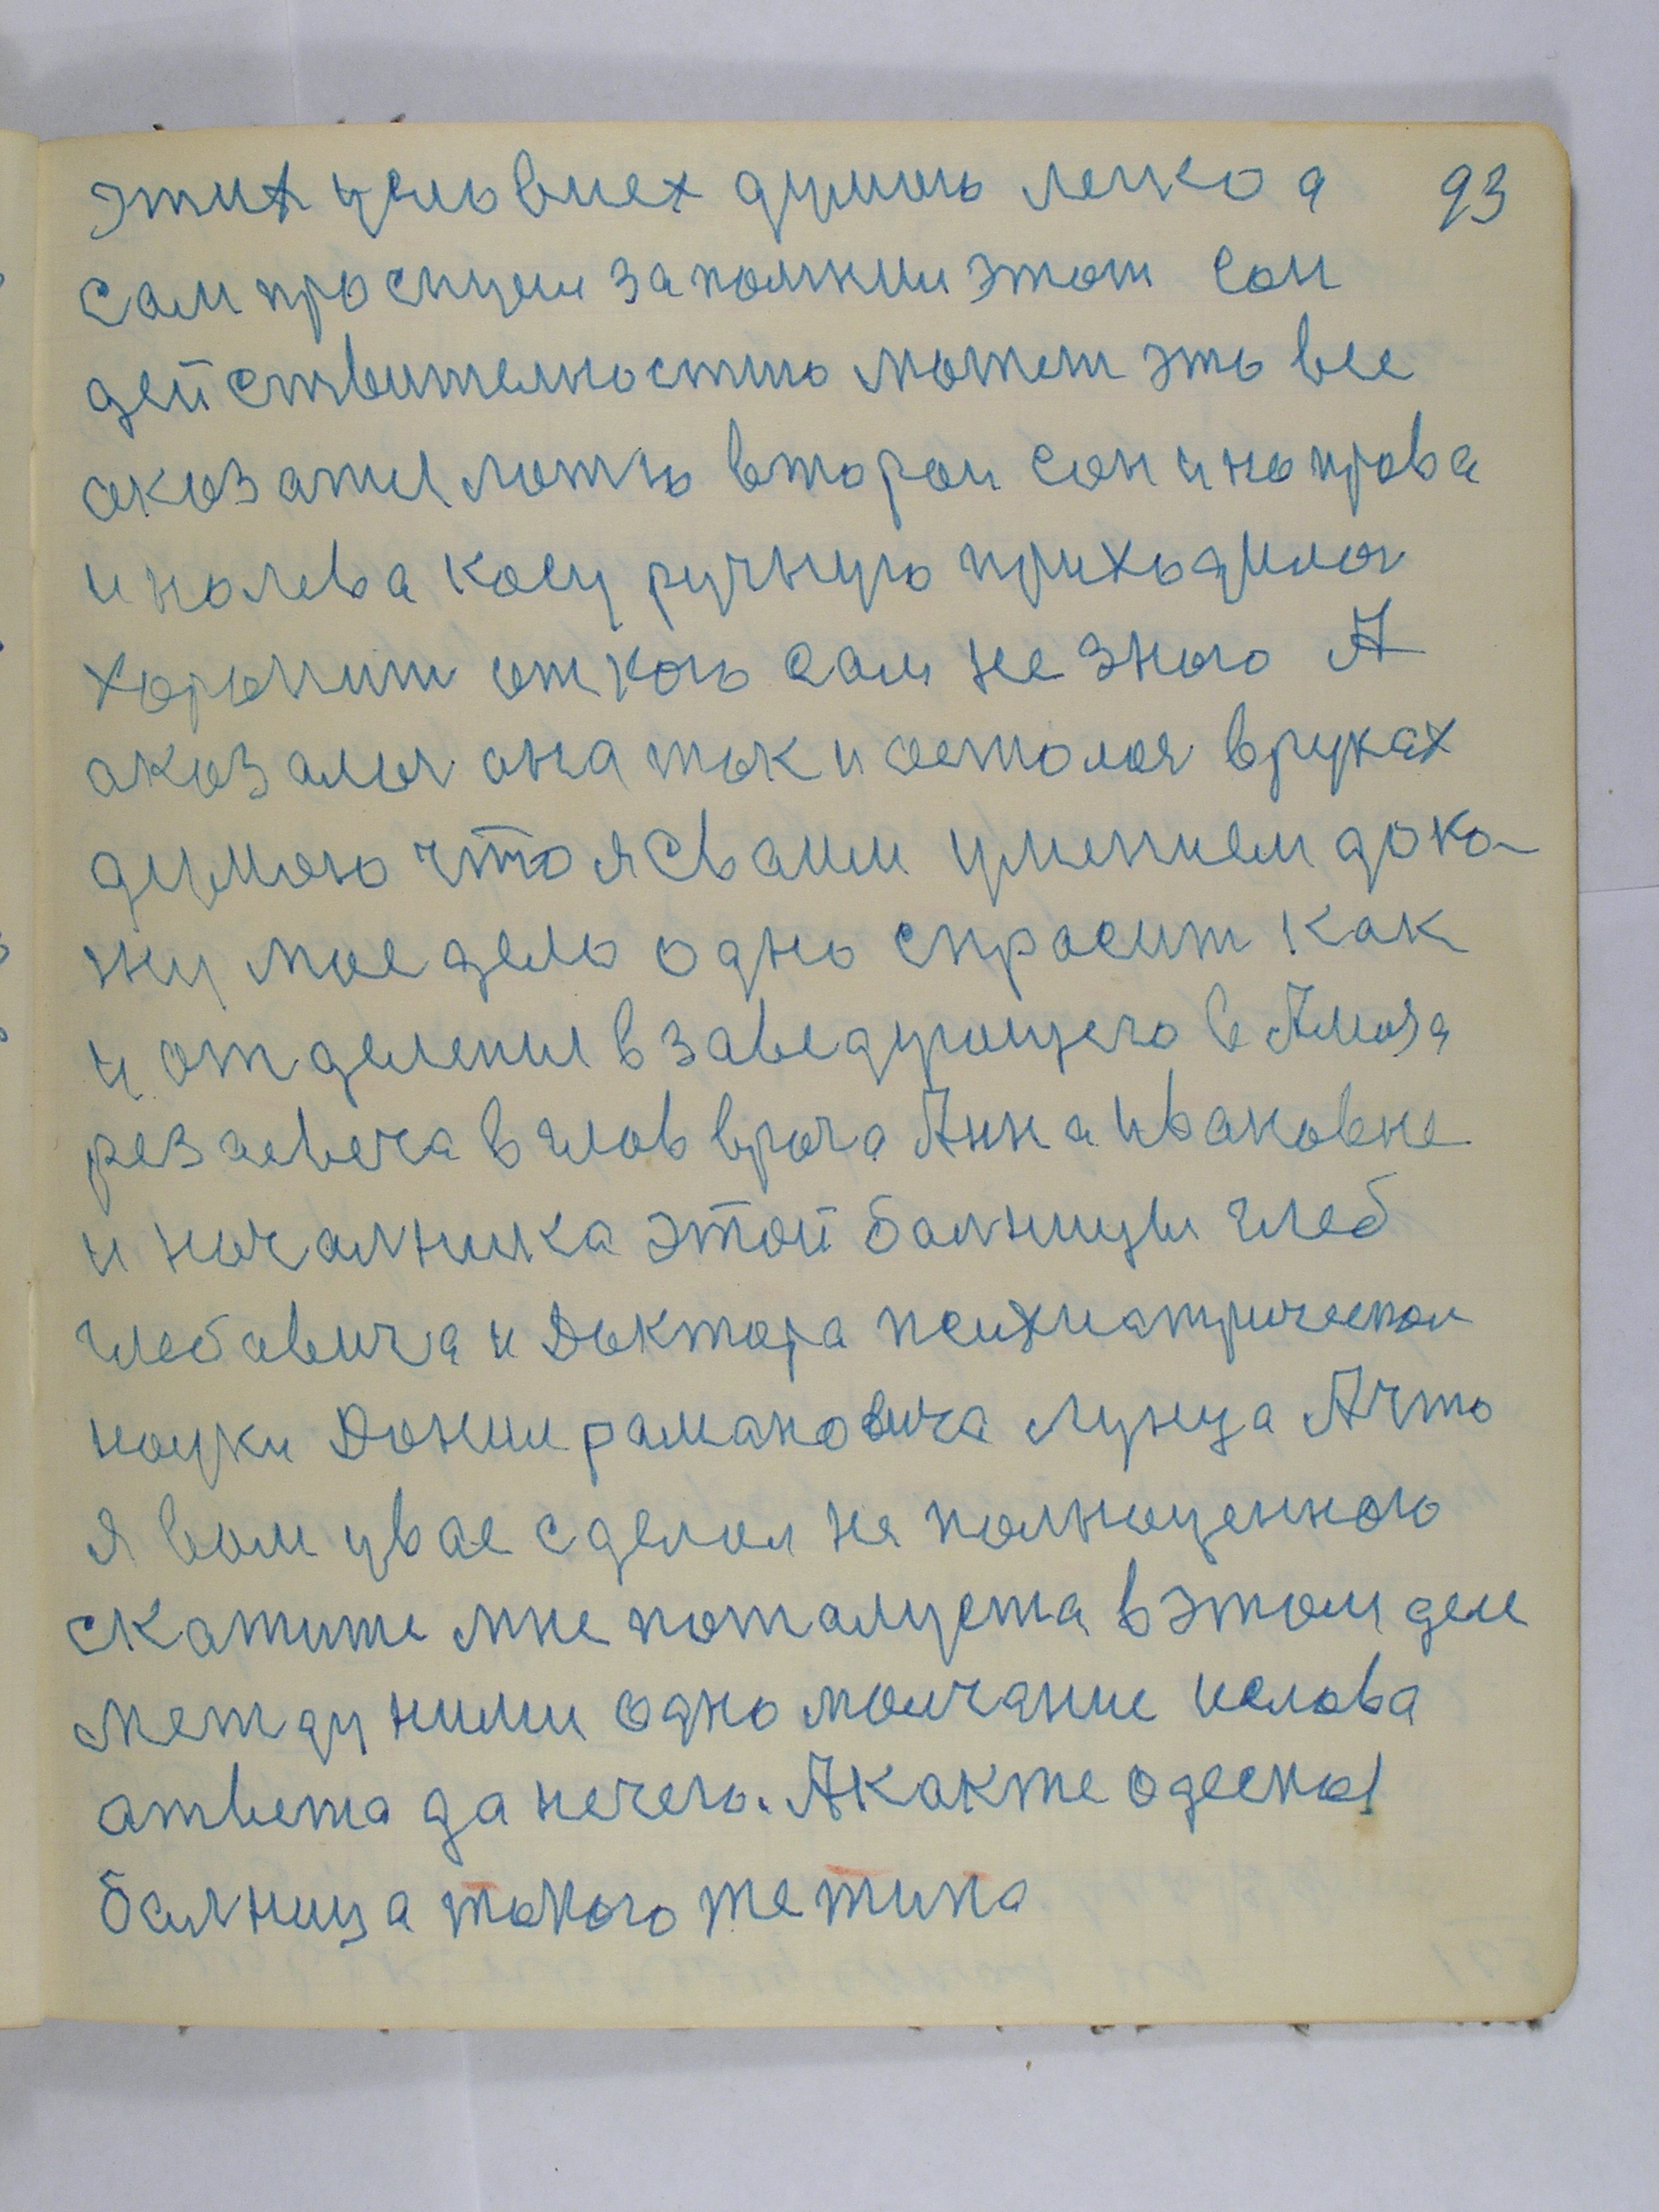 этих условиех думаю легко а 93
сам проснулся запомнил этот сон
действителностиюможеш это все
оказатся ложю второи сон и направа
и налева косу ручную приходилоя
хоронит от кого сам не знаю А
оказалоя она так и осталоя в руках
думаю что я сваим умением дока-
жу мое дело одно спросит как
и отделения в заведующего в Амоза
резаевеча в глав врача Анна Ивановне
и началника этой балницы глеб
глебавича и Доктора психиатрическои
науки Данил рамановича Лунца А что
я вам увас сделал не полноценного
скажите мне пожалуста в этом деле
между ними одно молчание ислова
атвета да нечего. А как же одескоя
балница такого же типа